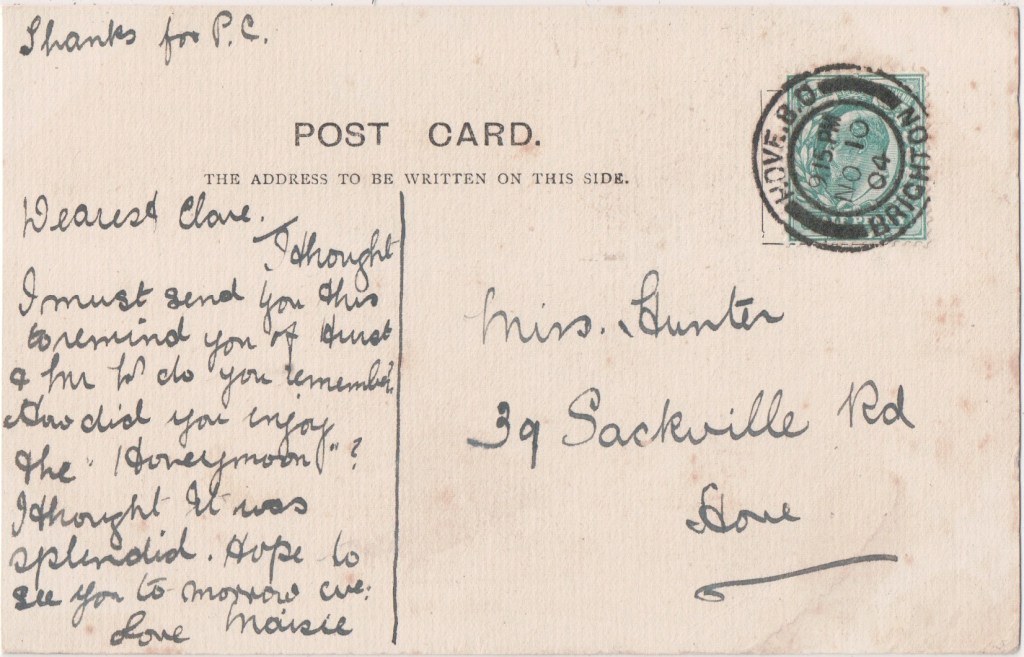 Thanks for P.C.
POST CARD.
THE ADDRESS TO BE WRITTEN ON THIS SIDE.
HOVE. B.O.
BRIGHTON
9.15.PM
NO 10
04
Dearest Clare.
I thought
I must send you this
to remind you of Hurst
& Mr W do you remember.
How did you enjoy
the "Honeymoon"?
I thought It was
splendid. Hope to
see you to morrow eve:
Love Maisie
Miss. Hunter
39 Sackville Rd
Hove